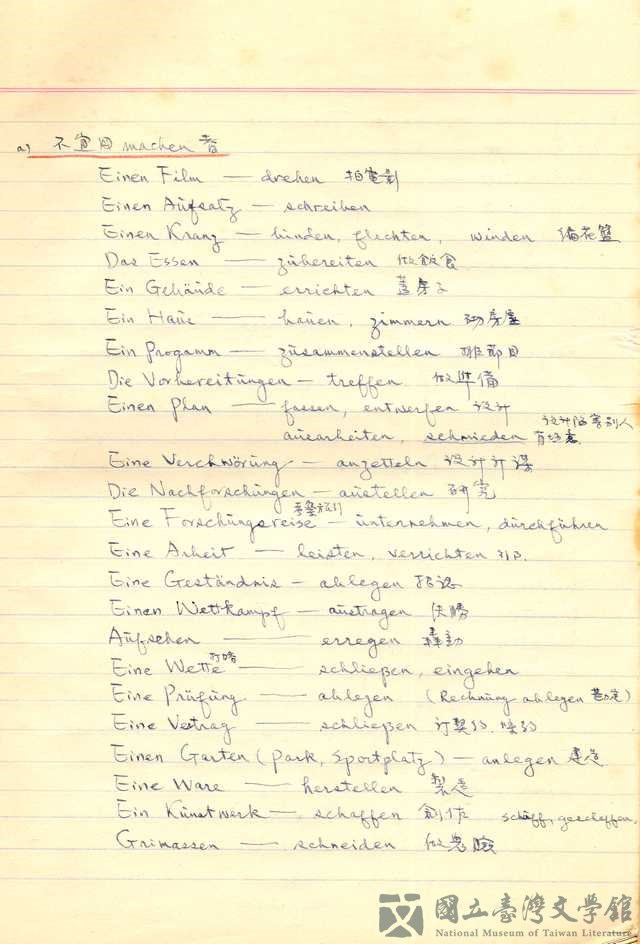 a) 不宜用 machen 者
Einen Film — drehen 拍電影
Einen Aufsatz — schreiben
Einen Kranz — binden, flechten, winden 編花籃
Das Essen — zubereiten 做飯食
Ein Gebäude — errichten 蓋房子
Ein Haus — bauen, zimmern 房屋
Ein Progamm — zusammenstellen 排節目
Die Vorbereitungen — treffen 做準備
Einen Plan — fassen, entwerfen 設計
設計陷害別人
ausarbeiten, schmieden
Eine Verchwörung — anzetteln 設計計謀
Die Nachforschungen — anstellen 研究
Eine Forschungsreise — unternehmen, durchführen
Eine Arbeit — leisten, verrichten
Eine Geständnis — ablegen 招認
Einen Wettkampf — austragen 決勝
Aufsehen — erregen 轟動
打賭
Eine Wette — schließen, eingehen
Eine Prüfung — ablegen (Rechnung ablegen)
Eine Vertrag — schließen 訂契約
Einen Garten (Park, Sportplatz) — anlegen 建造
Eine Ware — herstellen 製造
Ein Kunstwerk — schaffen 創作 schuff, geschaffen,
Grimassen — schneiden 做鬼臉
國立臺灣文學館
National Museum of Taiwan Literature